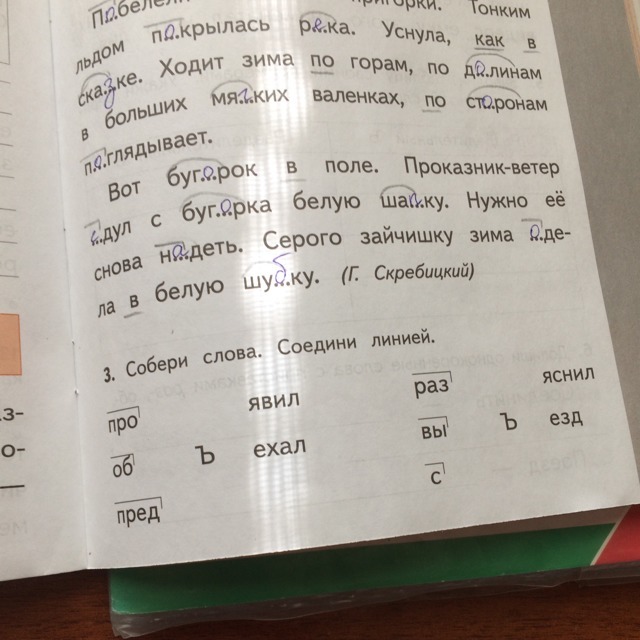 Тонким
льдом по.крылась ре.ка. Уснула, как в
сказ.ке. Ходит зима по горам, по до.линам
в больших мяг.ких валенках, по сто.ронам
по.глядывает.
Вот буго.рок в поле. Проказник-ветер
с.дул с буго.рка белую шап.ку. Нужно её
снова на.деть. Серого зайчишку зима о.де-
ла в белую шуб.ку. (Г. Скребицкий)
3. Собери слова. Соедини линией.
про явил раз яснил
об Ъ ехал вы Ъ езд
пред с